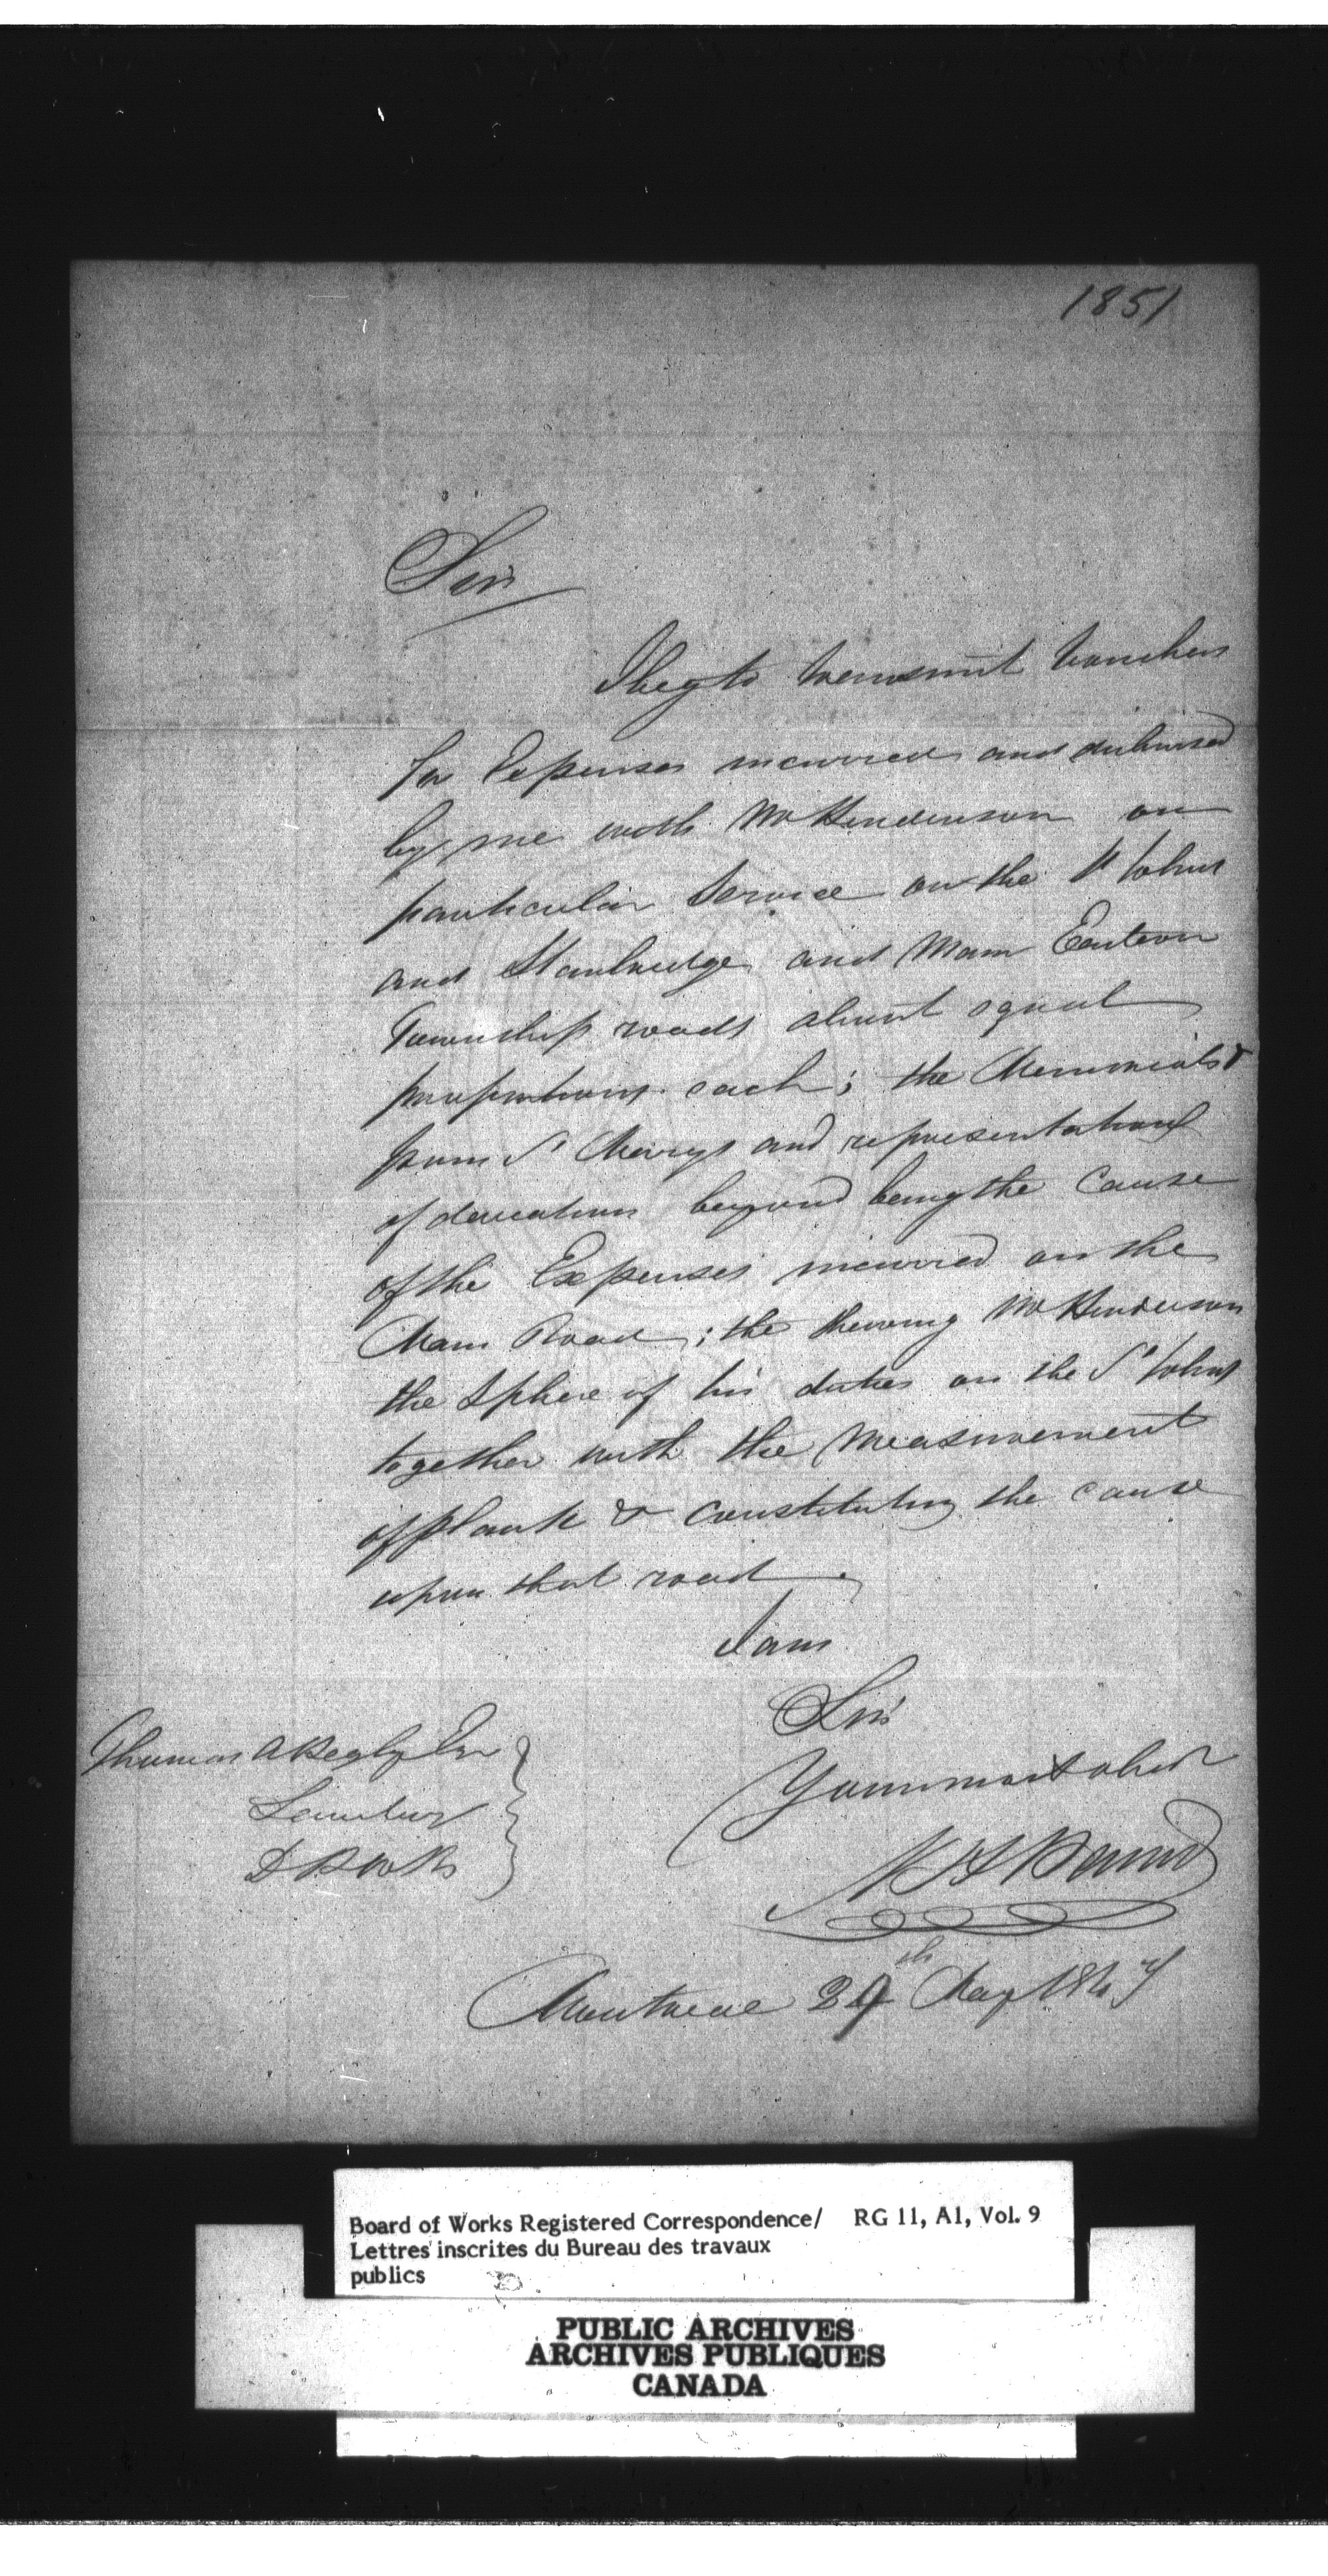 1851
Sir
I beg to transmit Vouchers
for Expenses incurred and disbursed
by me with Mr Henderson on
particular Service on the St Johns
and Stanbridge and Main Eastern
Township roads about equal
proportions each; the Memorials &
from St Marys and representations
of deviations beyond being the Cause
of the Expenses incurred on the
Main Road; the shewing Mr Henderson
the Sphere of his duties on the St Johns
together with the Measurement
of plank & constituting the cause
upon that road.
I am
Sir
Your most obedt
Thomas A Begly Esr
Secretary
Montreal 29th May 184
Board of Works Registered Correspondence/ RG 11, A1, Vol. 9
Lettres inscrites du Bureau des travaux
publics
PUBLIC ARCHIVES
ARCHIVES PUBLIQUES
CANADA